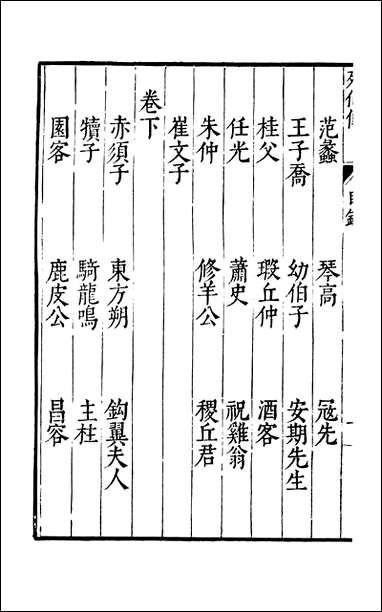 范蠡 琴高 冦先
王子喬 幼伯子 安期先生
桂父 瑕丘仲 酒客
任光 蕭史 祝雞翁
朱仲 修羊公 稷丘君
崔文子
卷下
赤須子 東方朔 鈎翼夫人
犢子 騎龍鳴 主柱
園客 鹿皮公 昌容